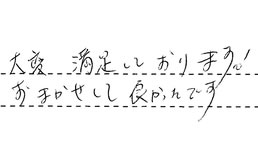 大変 満足しております!
おまかせして良かったです